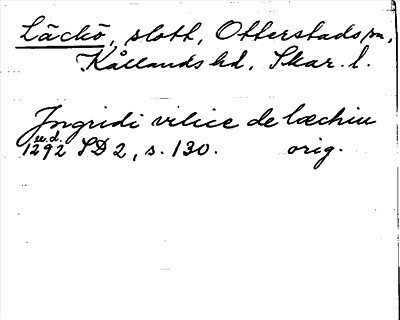 Läckö, slott, Otterstads sn,
Kållands hd, Skar. l.
Ingridi vilice de læchiu
u.d.
1292 SD 2, s. 130. orig.